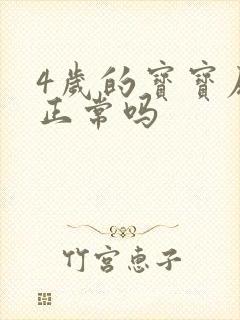 4歲的寶寶
正常吗
竹宫惠子